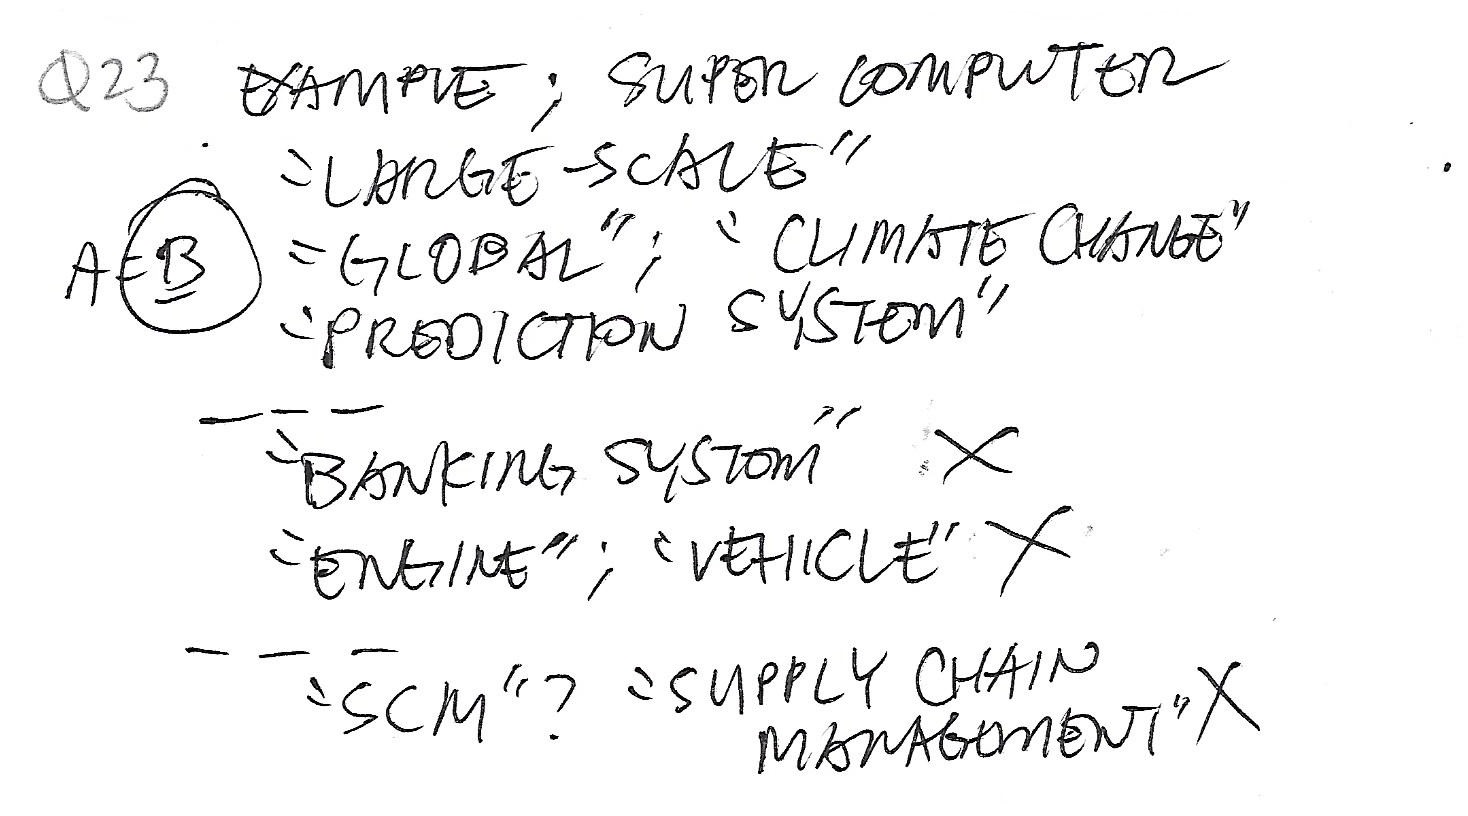 Q23 EXAMPLE; SUPER COMPUTER
"LARGE-SCALE"
A = B "GLOBAL"; "CLIMATE CHANGE"
"PREDICTION SYSTEM"
---
"BANKING SYSTEM" X
"ENGINE"; "VEHICLE" X
---
"SCM"? "SUPPLY CHAIN
MANAGEMENT" X